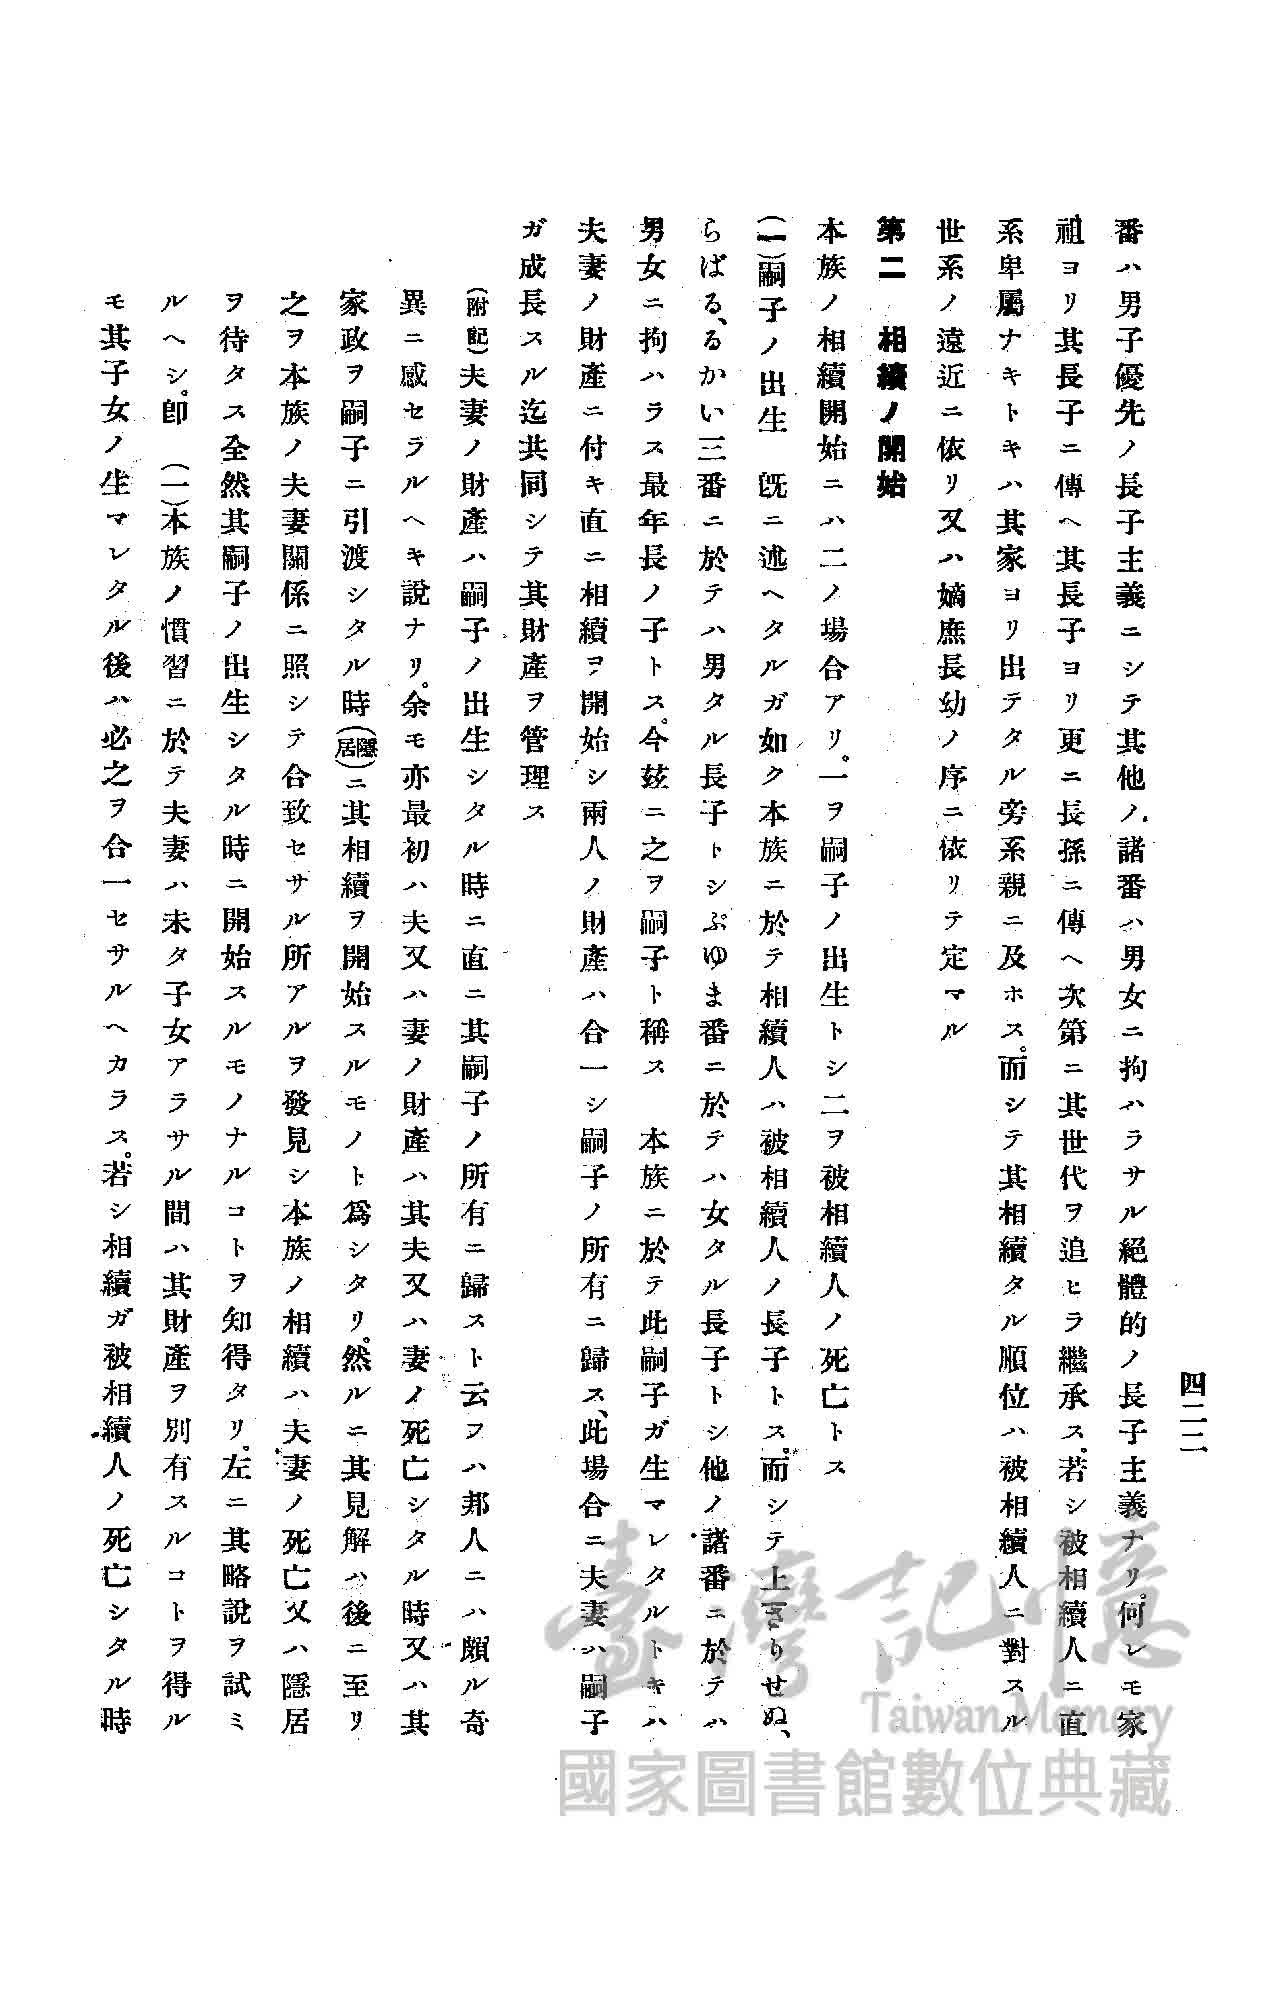 四二二
番ハ男子優先ノ長子主義ニシテ其他ノ諸番ハ男女ニ拘ハラサル絕體的ノ長子主義ナリ。何レモ家
祖ヨリ其長子ニ傳ヘ其長子ヨリ更ニ長孫ニ傳ヘ次第ニ其世代ヲ追ヒラ繼承ス。若シ被相續人ニ直
系卑屬ナキトキハ其家ヨリ出テタル旁系親ニ及ホス。而シテ其相續タル順位ハ被相續人ニ對スル
世系ノ遠近ニ依リ又ハ嫡庶長幼ノ序ニ依リテ定マル
第二 相續ノ開始
本族ノ相續開始ニハ二ノ場合アリ。一ヲ嗣子ノ出生トシ二ヲ被相續人ノ死亡トス
(一)嗣子ノ出生 旣ニ述ヘタルガ如ク本族ニ於テ相續人ハ被相續人ノ長子トス。而シテ上きりせぬ、
らばる、るかい三番ニ於テハ男タル長子トシぷゆま番ニ於テハ女タル長子トシ他ノ諸番ニ於テハ
男女ニ拘ハラス最年長ノ子トス。今玆ニ之ヲ嗣子ト稱ス 本族ニ於テ此嗣子ガ生マレタルトキハ
夫妻ノ財產ニ付キ直ニ相續ヲ開始シ兩人ノ財產ハ合一シ嗣子ノ所有ニ歸ス、此場合ニ夫妻ハ嗣子
ガ成長スル迄共同シテ其財產ヲ管理ス
(附記)夫妻ノ財產ハ嗣子ノ出生シタル時ニ直ニ其嗣子ノ所有ニ歸スト云フハ邦人ニハ頗ル奇
異ニ感セラルヘキ說ナリ。余モ亦最初ハ夫又ハ妻ノ財產ハ其夫又ハ妻ノ死亡シタル時又ハ其
家政ヲ嗣子ニ引渡シタル時(隱居)ニ其相續ヲ開始スルモノト爲シタリ。然ルニ其見解ハ後ニ至リ
之ヲ本族ノ夫妻關係ニ照シテ合致セサル所アルヲ發見シ本族ノ相續ハ夫妻ノ死亡又ハ隱居
ヲ待タス全然其嗣子ノ出生シタル時ニ開始スルモノナルコトヲ知得タリ。左ニ其略說ヲ試ミ
ルヘシ。卽 (一)本族ノ慣習ニ於テ夫妻ハ未タ子女アラサル間ハ其財產ヲ別有スルコトヲ得ル
モ其子女ノ生マレタル後ハ必之ヲ合一セサルヘカラス。若シ相續ガ被相續人ノ死亡シタル時
臺灣記憶
Taiwan Memory
國家圖書館數位典藏